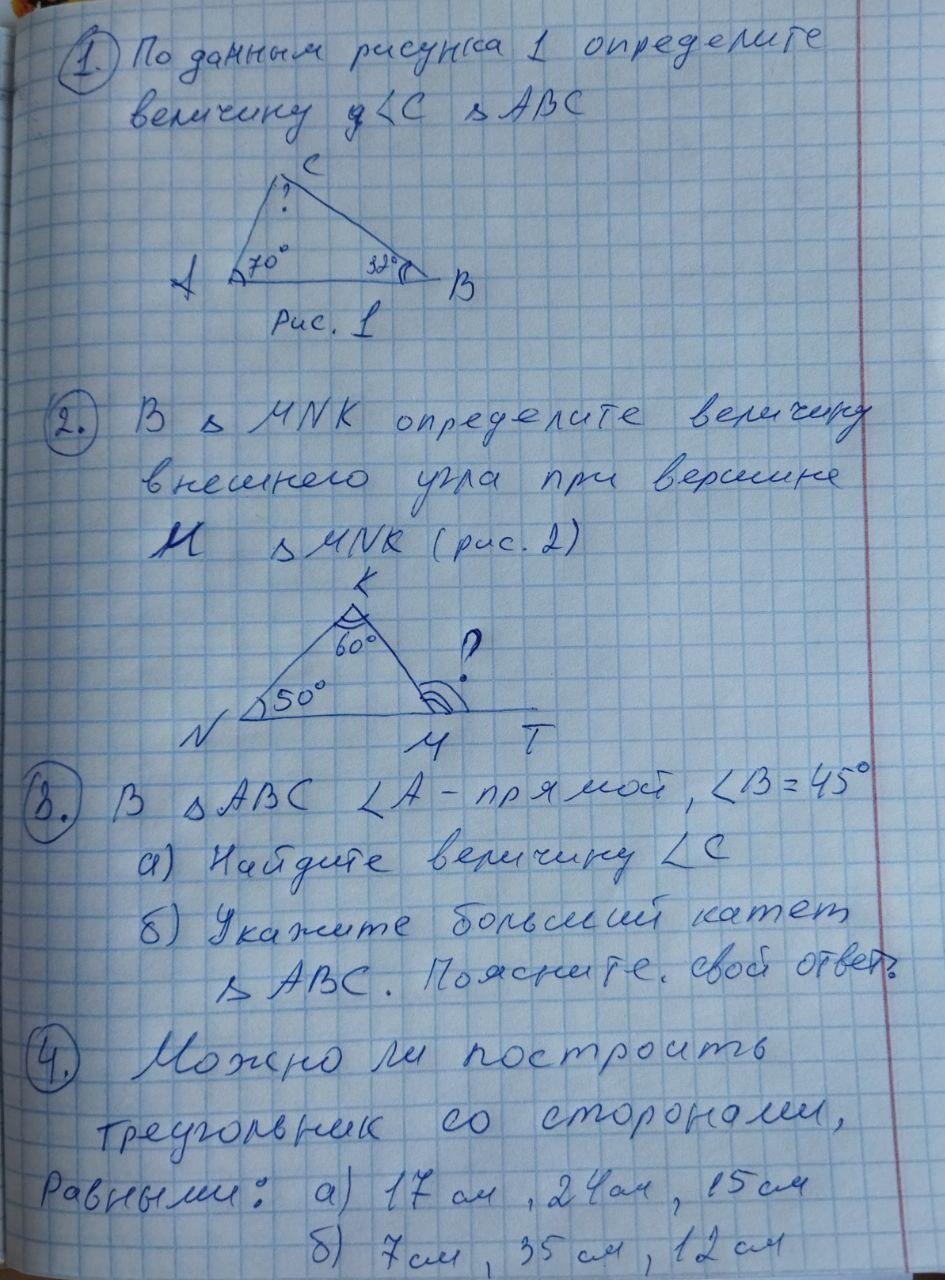 1. По данным рисунка 1 определите
величину ∠C △ ABC
C
?
A 70° 32° B
Рис. 1
2. В △ MNK определите величину
внешнего угла при вершине
M △ MNK (рис. 2)
K
60° ?
50°
N M T
3. В △ ABC ∠A - прямой, ∠B = 45°
а) Найдите величину ∠C
б) Укажите больший катет
△ ABC. Поясните свой ответ.
4. Можно ли построить
треугольник со сторонами,
равными: а) 17 см, 24 см, 15 см
б) 7 см, 35 см, 12 см